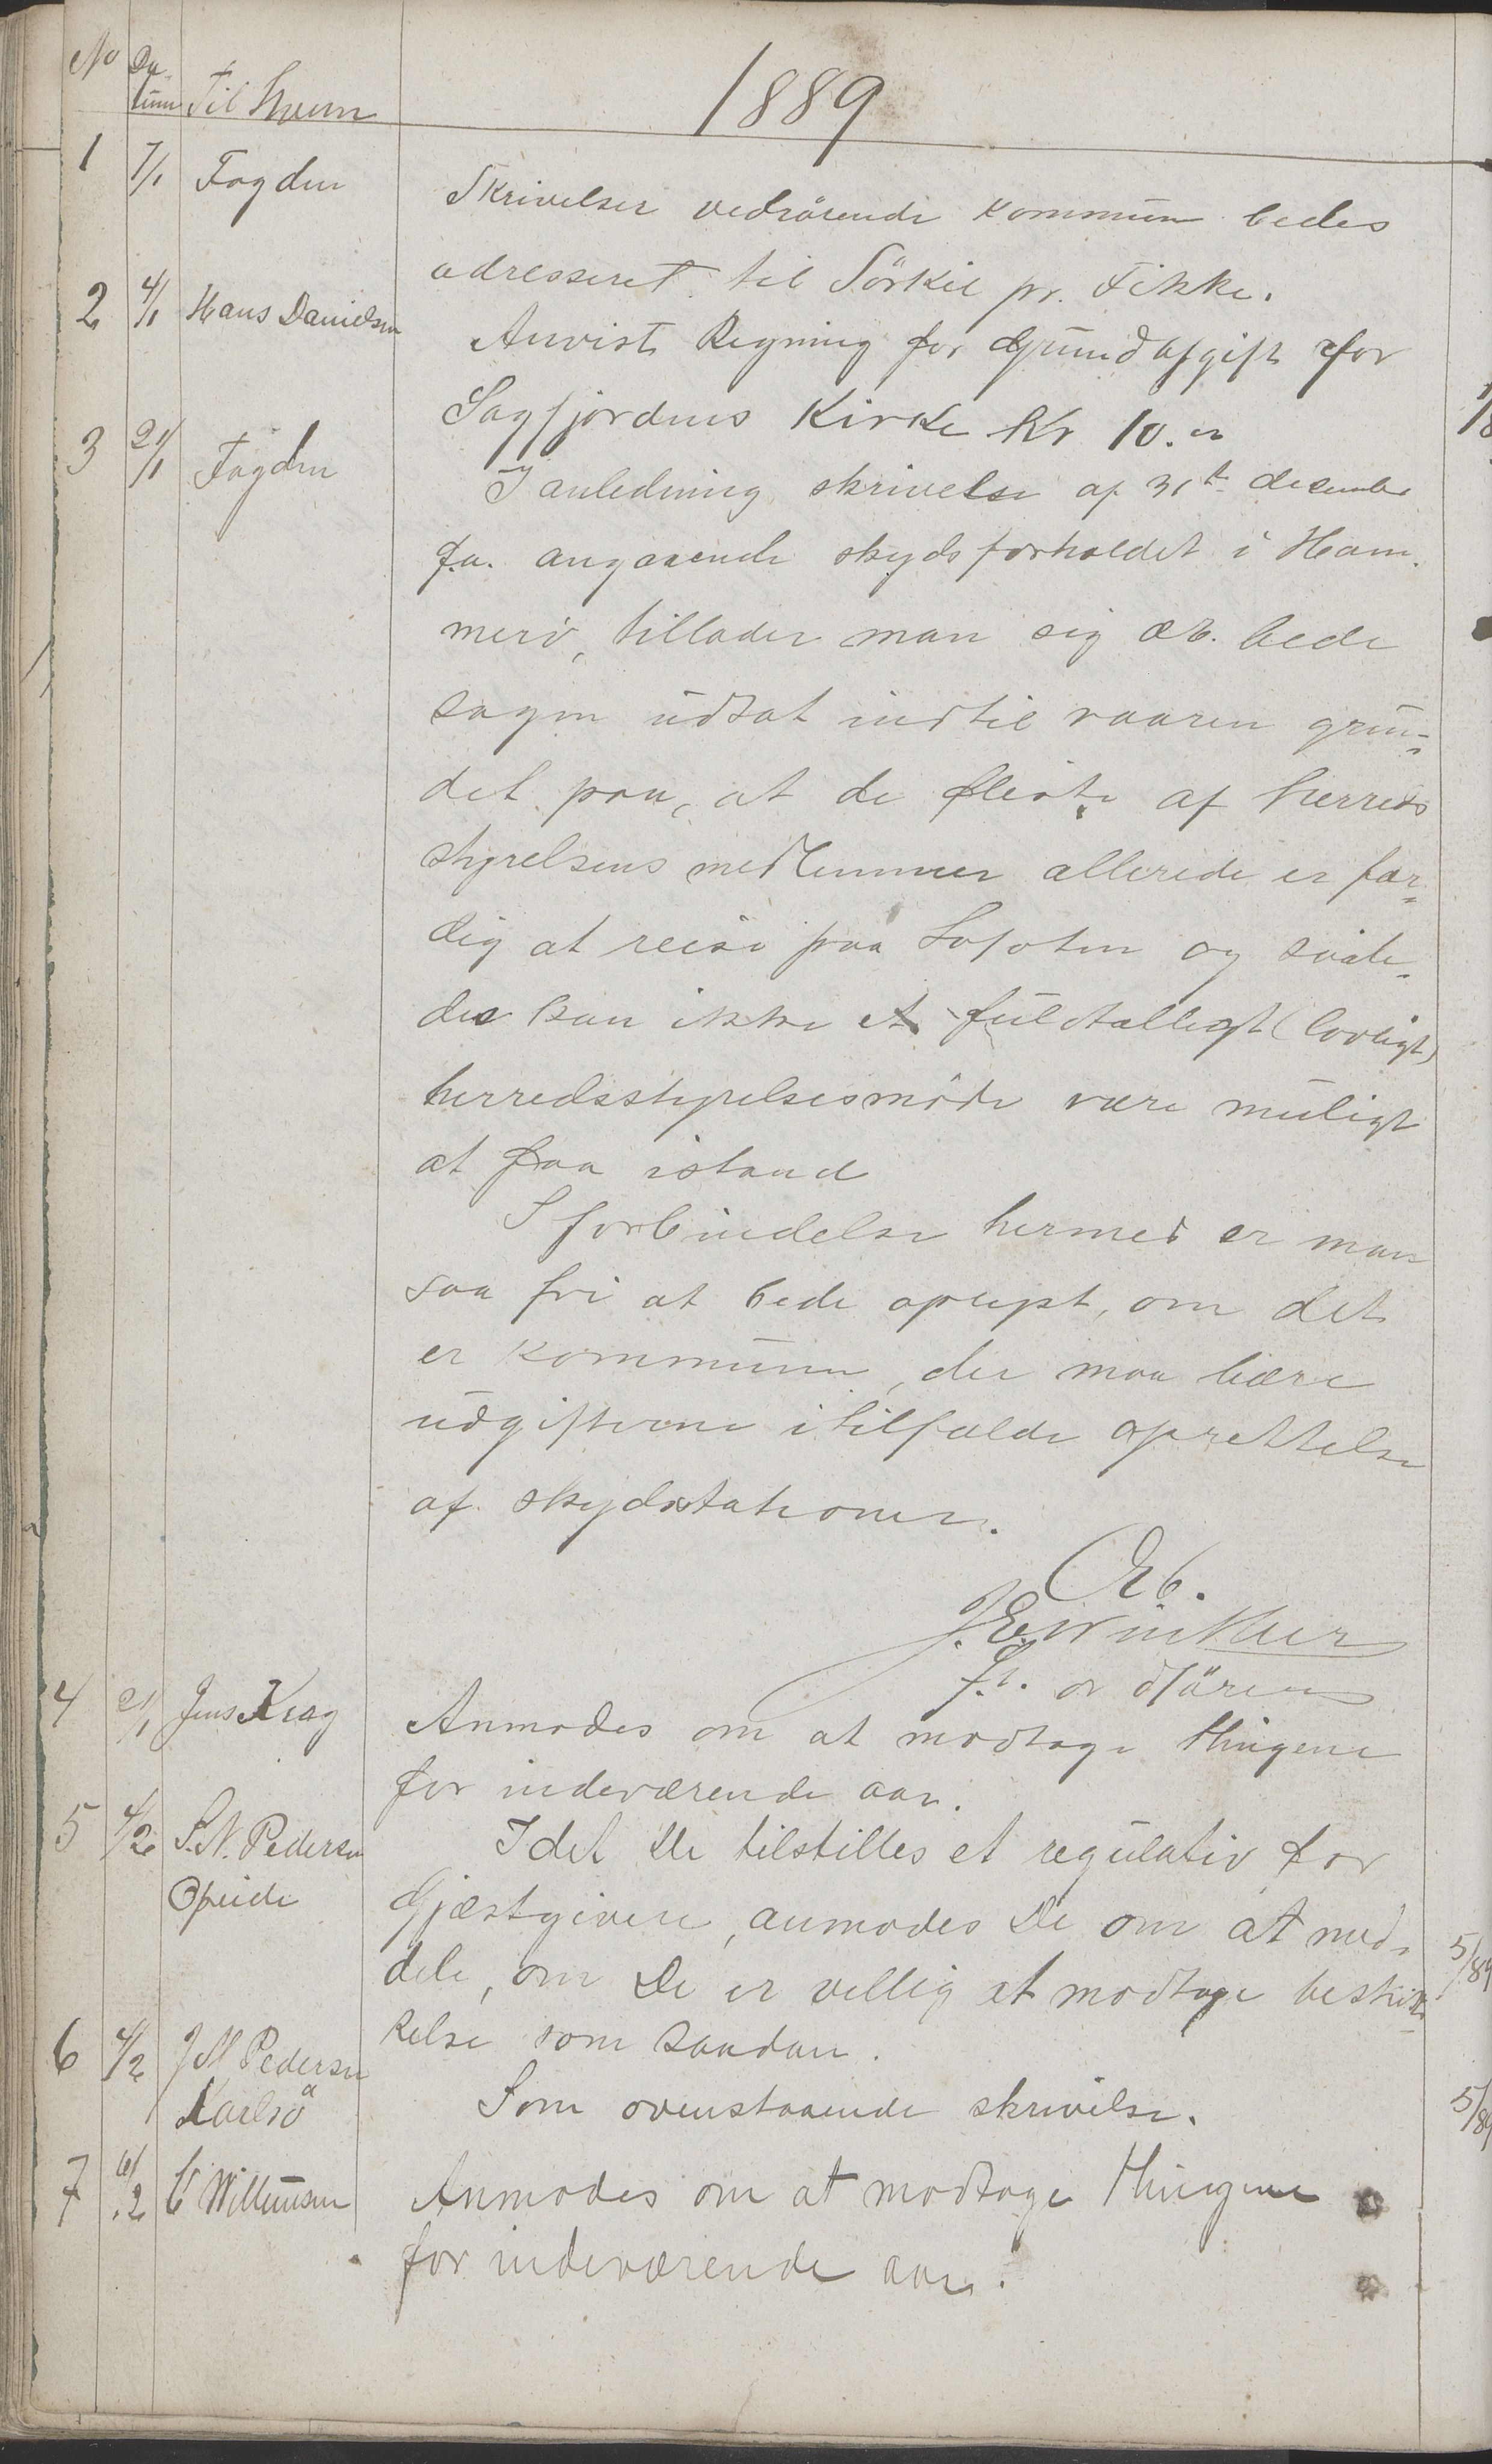 No Da- Til Hvem 1889
tum
1 7/1 Fogden Skrivelser vedrörende kommunen bedes
adresseret til Sörkil pr. Tikke.
2 4/1 Hans Danielsen Anvist Regning for Grundafgift for
Sagfjordens Kirke Kr 10.
3 21/1 Fogden I anledning skrivelse af 31te desember
f.a. angaaende skydsforholdet i Ham-
merö, tillader man sig ær. bede
sagen udsat indtil vaaren grun-
det paa, at de fleste af herreds
styrelsens medlemmer allerede er fær-
dig at reise paa Lofoten og saale-
des kan ikke et fuldtalligt (lovligt)
herredsstyrelsesmöde være muligt
at faa istand
I forbindelse hermed er man
saa fri at bede oplyst, om det
er kommunen, der maa bære
udgifterne i tilfælde oprettelse
af skydsstationer.
Ærb.
f.t. ordförer
4 21/1 Jens Krag Anmodes om at modtage thingene
for indeværende aar.
5 4/2 S.N. Pedersen Idet De tilstilles et regulativ for
Opeide Gjæstgivere, anmodes De om at med-
dele, om De er villig at modtage beskik-
5/89
kelse som saadan.
6 4/2 J M Pedersen
Karlsö Som ovenstaaende skrivelse.
5/89
7 6/2 C Willumsen Anmodes om at modtage thingene
for indeværende aar.